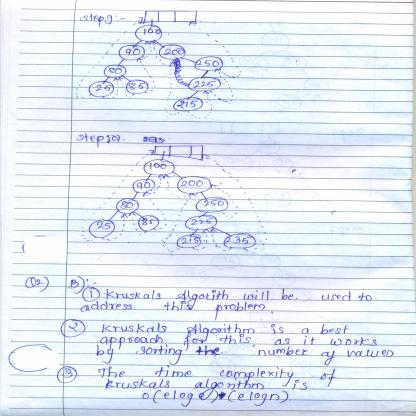 step 9:-
100
90 200
80 250
25 85 225
215
step 10).
100
90 200
80 250
25 85 225
215 235
Q2) B):-
① Kruskals Algorith will be used to
address this problem
② Kruskals Algorithm is a best
approach for this, as it works
by sorting the number of values
③ The time complexity of
Kruskals algorithm is
O(eloge) (elogn)